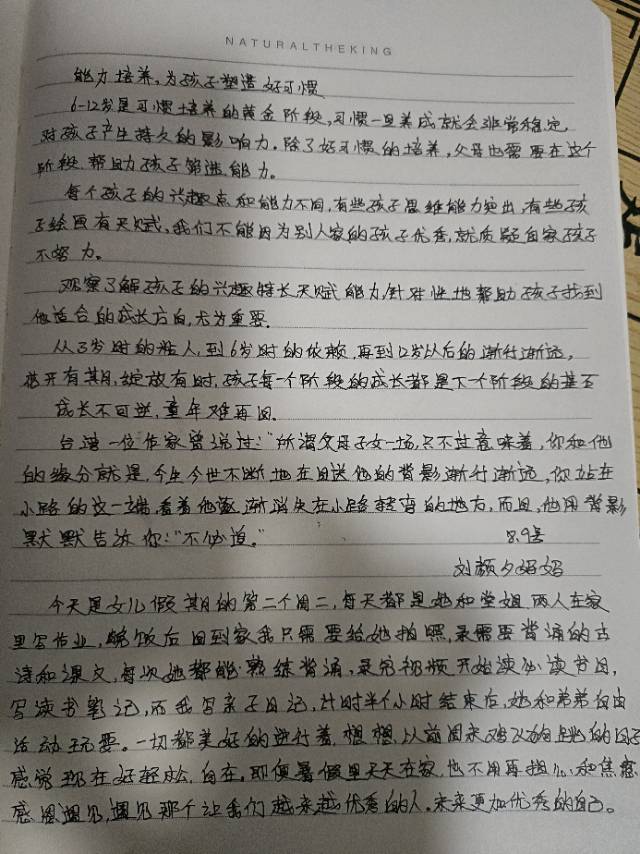 NATURALTHEKING
能力培养,为孩子塑造好习惯
6-12岁是习惯培养的黄金阶段,习惯一旦养成就会非常稳定,
对孩子产生持久的影响力。除了好习惯的培养,父母也需要在这个
阶段帮助孩子锻造能力。
每个孩子的兴趣点和能力不同,有些孩子思维能力突出,有些孩
子绘画有天赋,我们不能因为别人家的孩子优秀,就质疑自家孩子
不努力。
观察了解孩子的兴趣特长天赋能力,针对性地帮助孩子找到
他适合的成长方向,尤为重要.
从3岁时的粘人,到6岁时的依赖,再到12岁以后的渐行渐远,
花开有其期,绽放有时,孩子每一个阶段的成长都是下个阶段的基石
成长不可逆,童年难再回.
台湾一位作家曾说过:"所谓父母子女一场,只不过意味着,你和他
的缘分就是,今生今世不断地在目送他的背影渐行渐远,你站在
小路的这一端,看着他逐渐消失在小路转弯的地方,而且,他用背影
默默告诉你:"不必追。"
8.9号
刘颜夕妈妈
今天是女儿假期的第二个周二,每天都是她和堂姐两人在家
里写作业,晚饭后回到家我只需要给她拍照,录需要背诵的古
诗和课文,每次她都能熟练背诵,录完视频开始读必读书目,
写读书笔记,而我写亲子日记,计时半个小时结束后,她和弟弟自由
活动玩耍。一切都美好的进行着,想想,以前周末鸡飞狗跳的日子
感觉现在好轻松,自在,即便暑假里天天在家,也不用再担心和焦虑
感恩遇见,遇见那个让我们越来越优秀的人。未来更加优秀的自己。